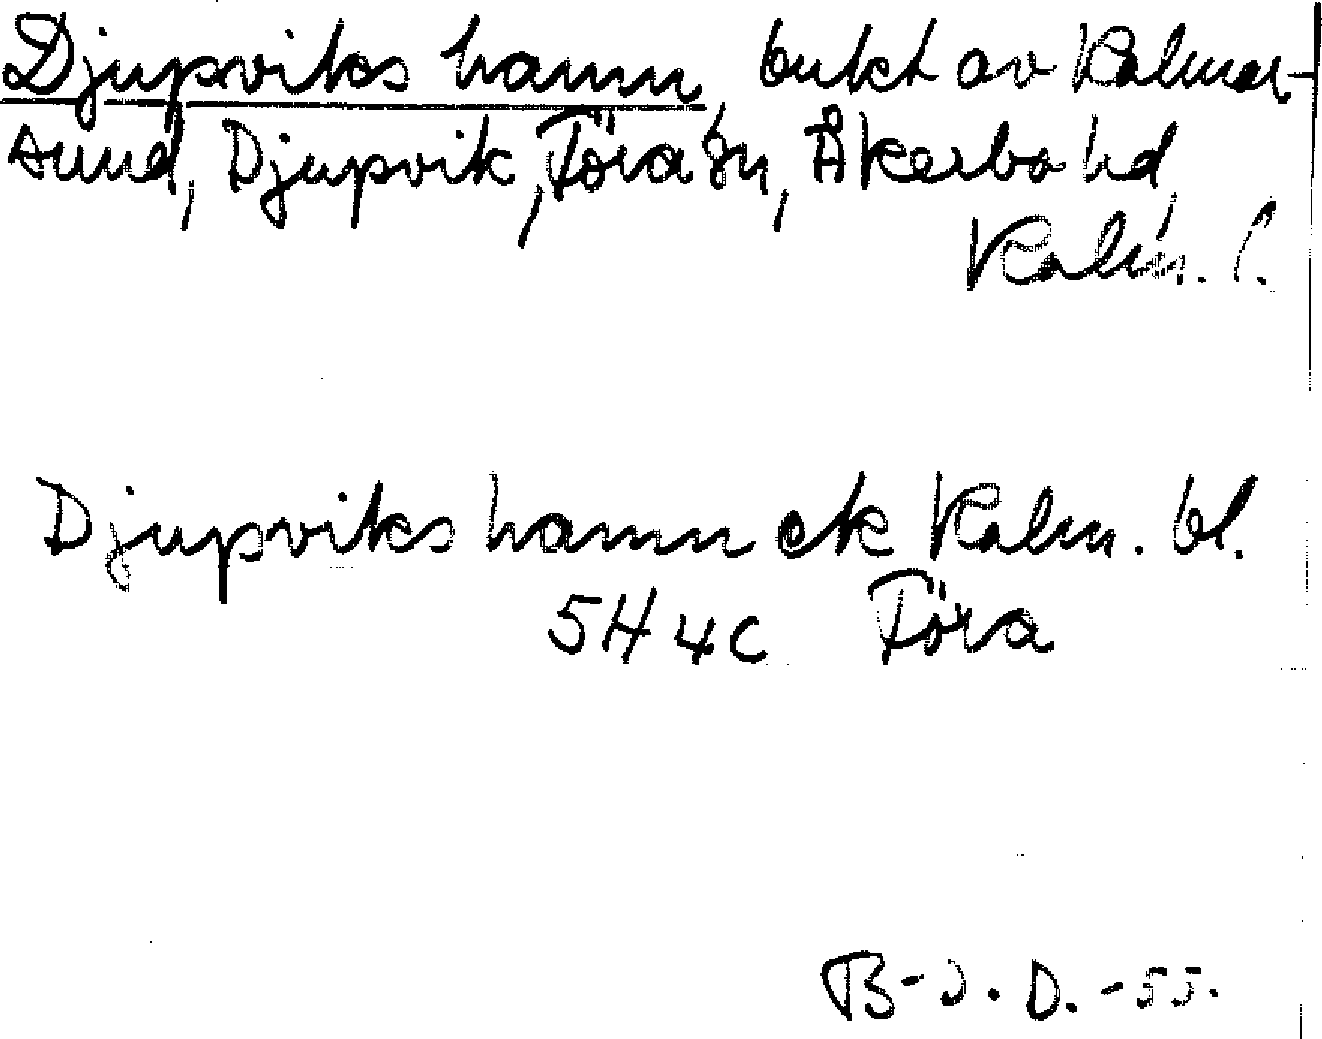 Djupviks hamn, bukt av Kalmar-
sund, Djupvik, Föra sn, Åkerbo hd,
Kalm. l.
Djupviks hamn ek Kalm. bl.
5H 4c Föra
B-J. D. -55.